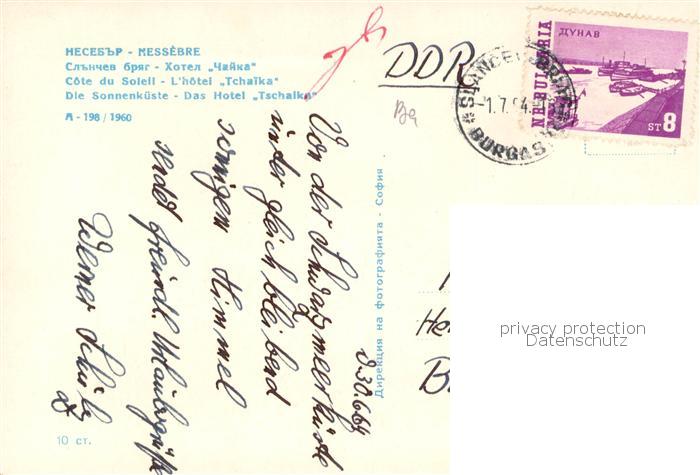 НЕСЕБЪР - NESSÈBRE
Слънчев бряг - Хотел „Чайка"
Côte du Soleil - L'hôtel „Tchaïka"
Die Sonnenküste - Das Hotel „Tschaika"
А - 198 / 1960
DDR
Bg
SLANCEV BRJAG
1.7.64
BURGAS
NR BULGARIA
ДУНАВ
ST 8
d 30.6.64
Von der Schwarzmeerküste
unter gleichbleibend
sonnigem Himmel
sendet freundl. Urlaubsgrüße
Werner
Дирекция на фотографията - София
He
B
privacy protection
Datenschutz
10 ст.